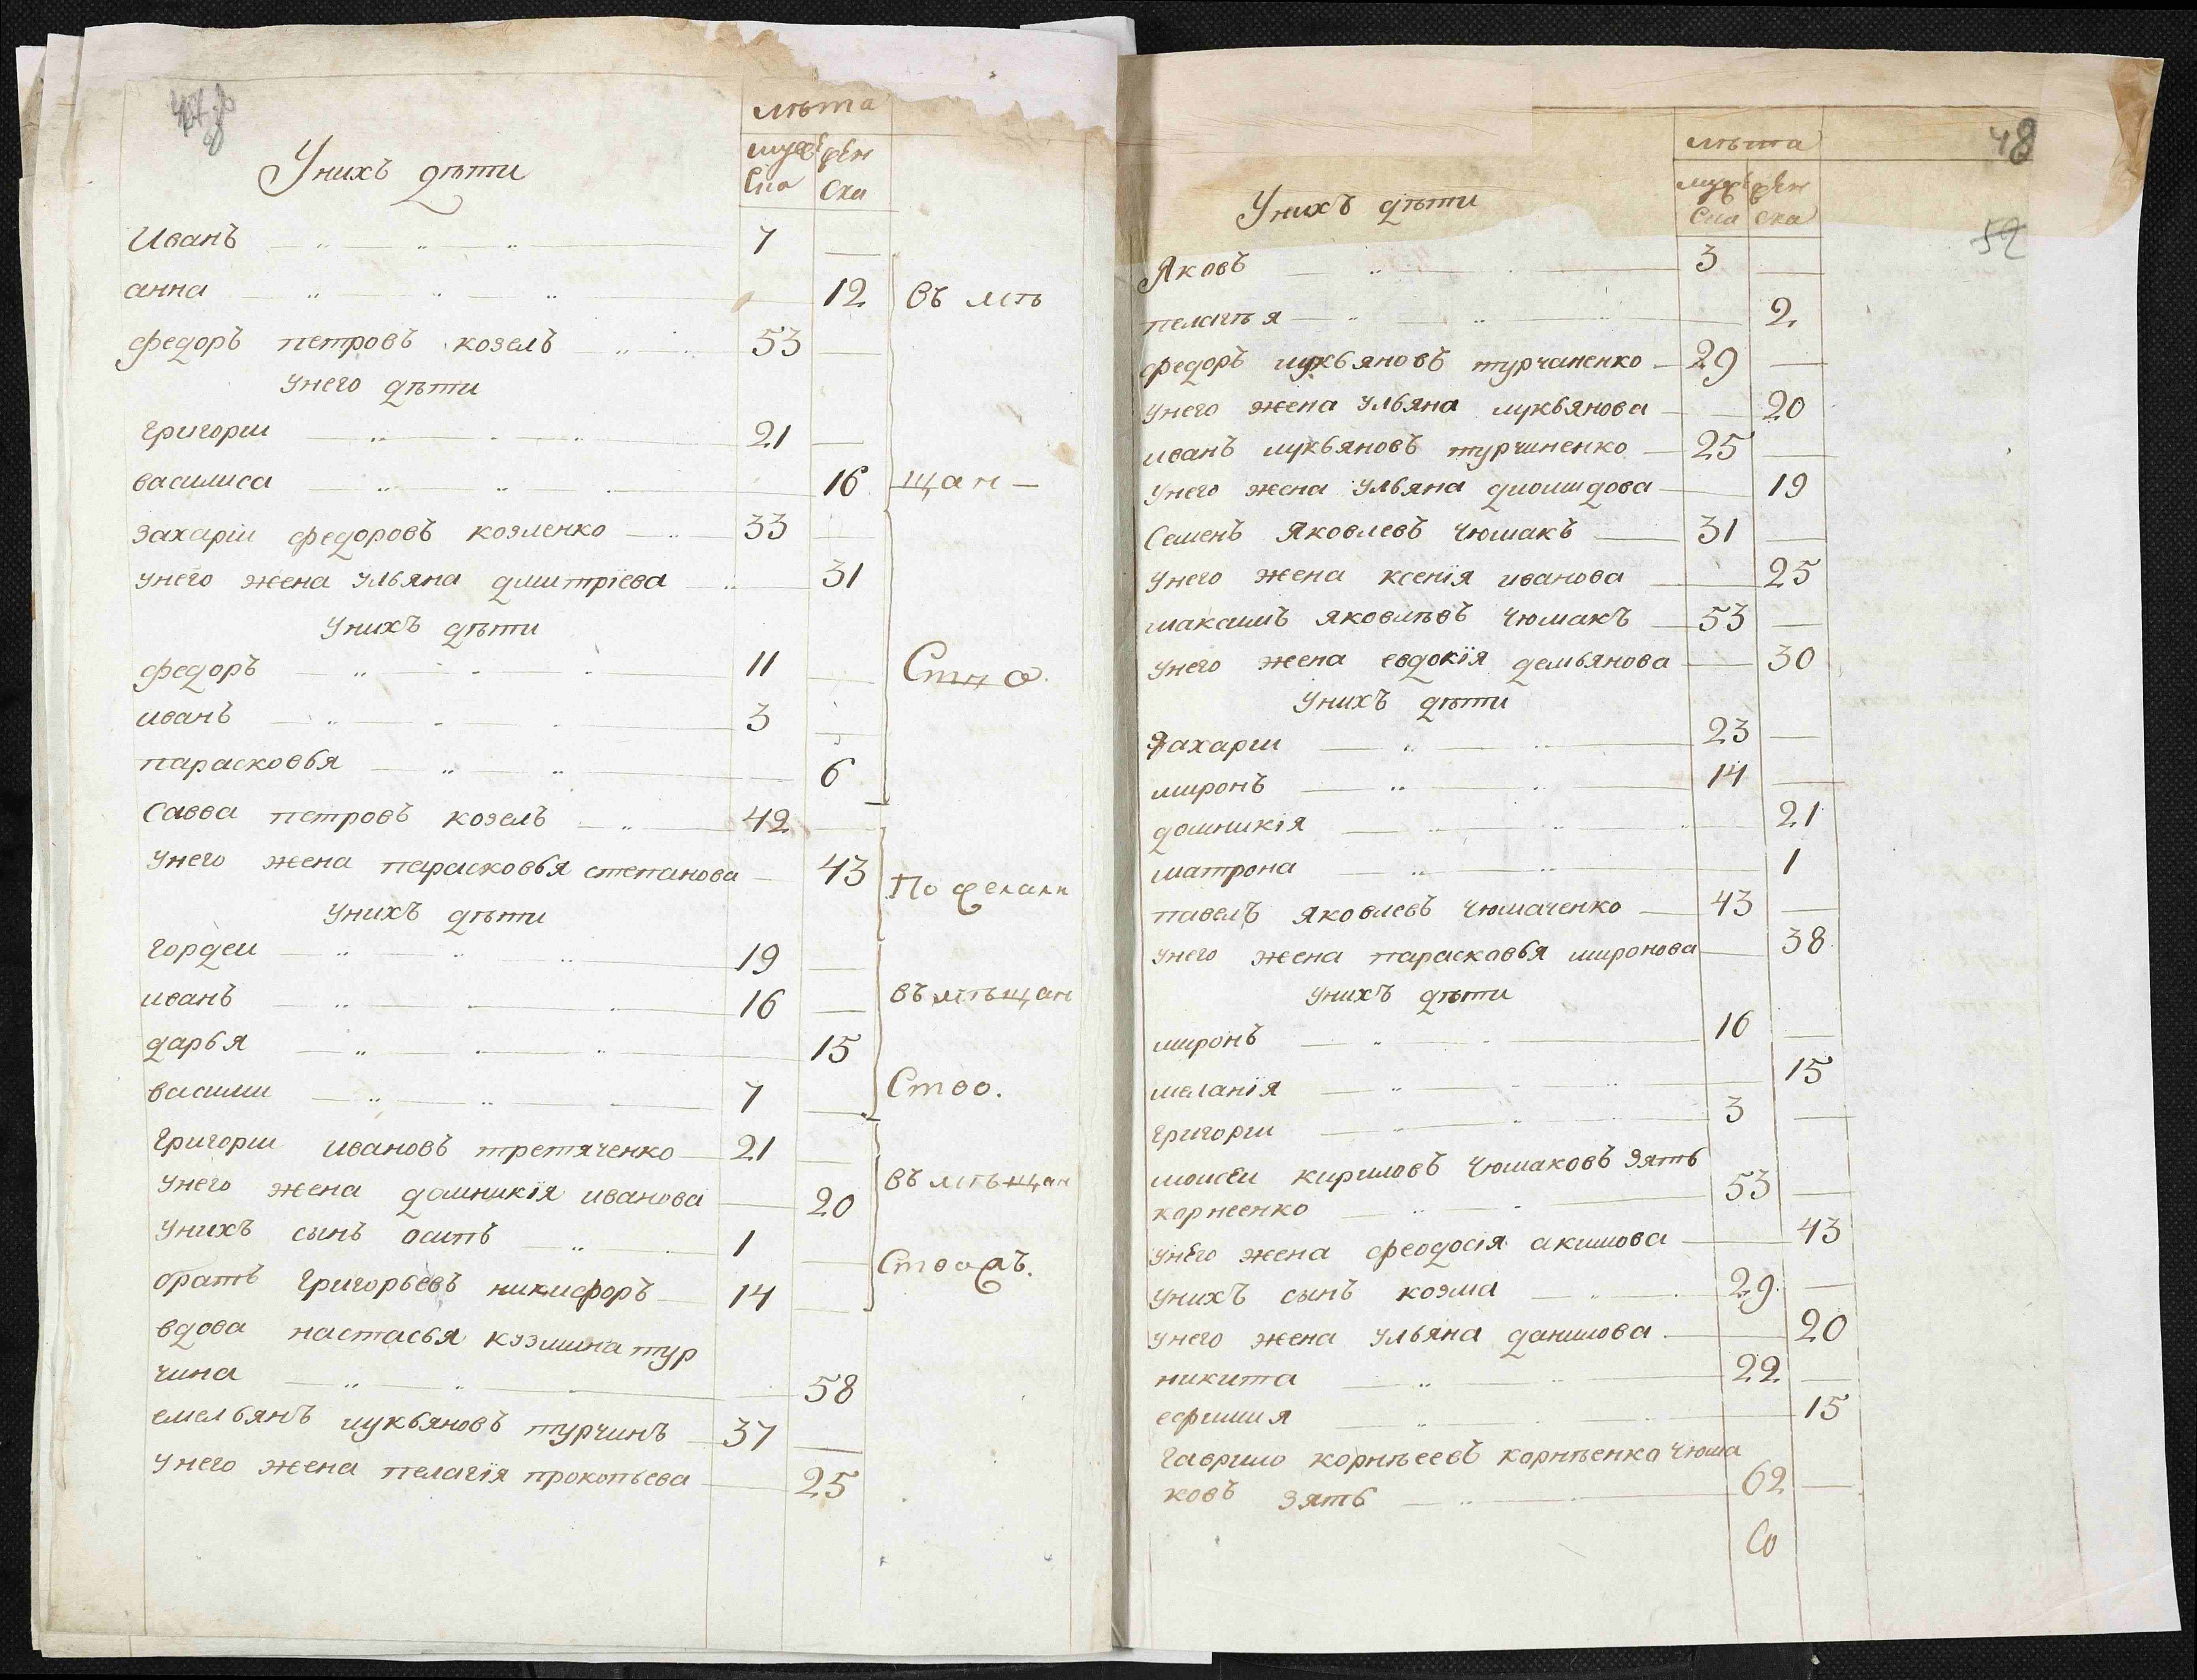 лѣта
Унихъ дѣти
муже
ска
жен
ска
Иванъ 7
анна 12
въ мѣ
федоръ петровъ козелъ 53
унего дѣти
григории 21
василиса 16
щан
захаріи федоровъ козленко 33
унего жена ульяна дмитріева 31
унихъ дѣти
федоръ 11
Ство.
иванъ 3
парасковья 6
Савва петровъ козелъ 42
унего жена парасковья степанова 43
Поженили
унихъ дѣти
гордеи 19
иванъ 16
въ мѣщан
дарья 15
василии 7
Ство.
григории ивановъ третяченко 21
унего жена домникія иванова 20
въ мѣщан
унихъ сынъ осипъ 1
Ство
братъ григорьевъ никифоръ 14
вдова настасья кузмина тур
чина 58
емельянъ лукьяновъ турчинъ 37
унего жена пелагія прокопьева 25
48
52
лѣта
Унихъ дѣти
муже
ска
жен
ска
Яковъ 3
пелагѣя 2
федоръ лукьяновъ турчаненко 29
унего жена ульяна лукьянова 20
иванъ лукьяновъ турчиненко 25
унего жена ульяна 19
Семенъ Яковлевъ чюмакъ 31
унего жена ксенія иванова 25
макаимъ яковлѣвъ чюмакъ 53
унего жена евдокія демьянова 30
унихъ дѣти
Захарии 23
миронъ 14
домникія 21
матрона 1
павелъ яковлевъ чюмаченко 43
унего жена парасковья миронова 38
унихъ дѣти
миронъ 16
меланія 15
григории 3
моисеи кириловъ чюмаковъ зять
корнеенко 53
унего жена феодосія акимова 43
унихъ сынъ козма 29
унего жена ульяна данилова 20
никита 22
ефимия 15
гаврило корнѣеевъ корнѣенко чюма
ковъ зять 62
Со